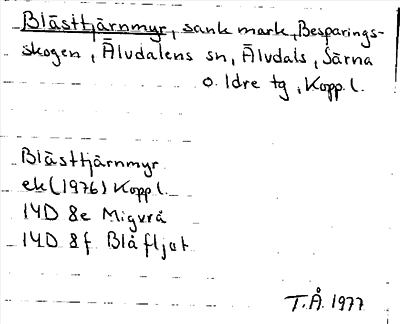 Blåsttjärnmyr, sank mark, Besparings-
skogen, Älvdalens sn, Älvdals, Särna
o. Idre tg, Kopp. l.
Blästtjärnmyr
ek (1976) Kopp l.
14D 8e Migvrå
14D 8f Blåfljot
T.Å. 1977